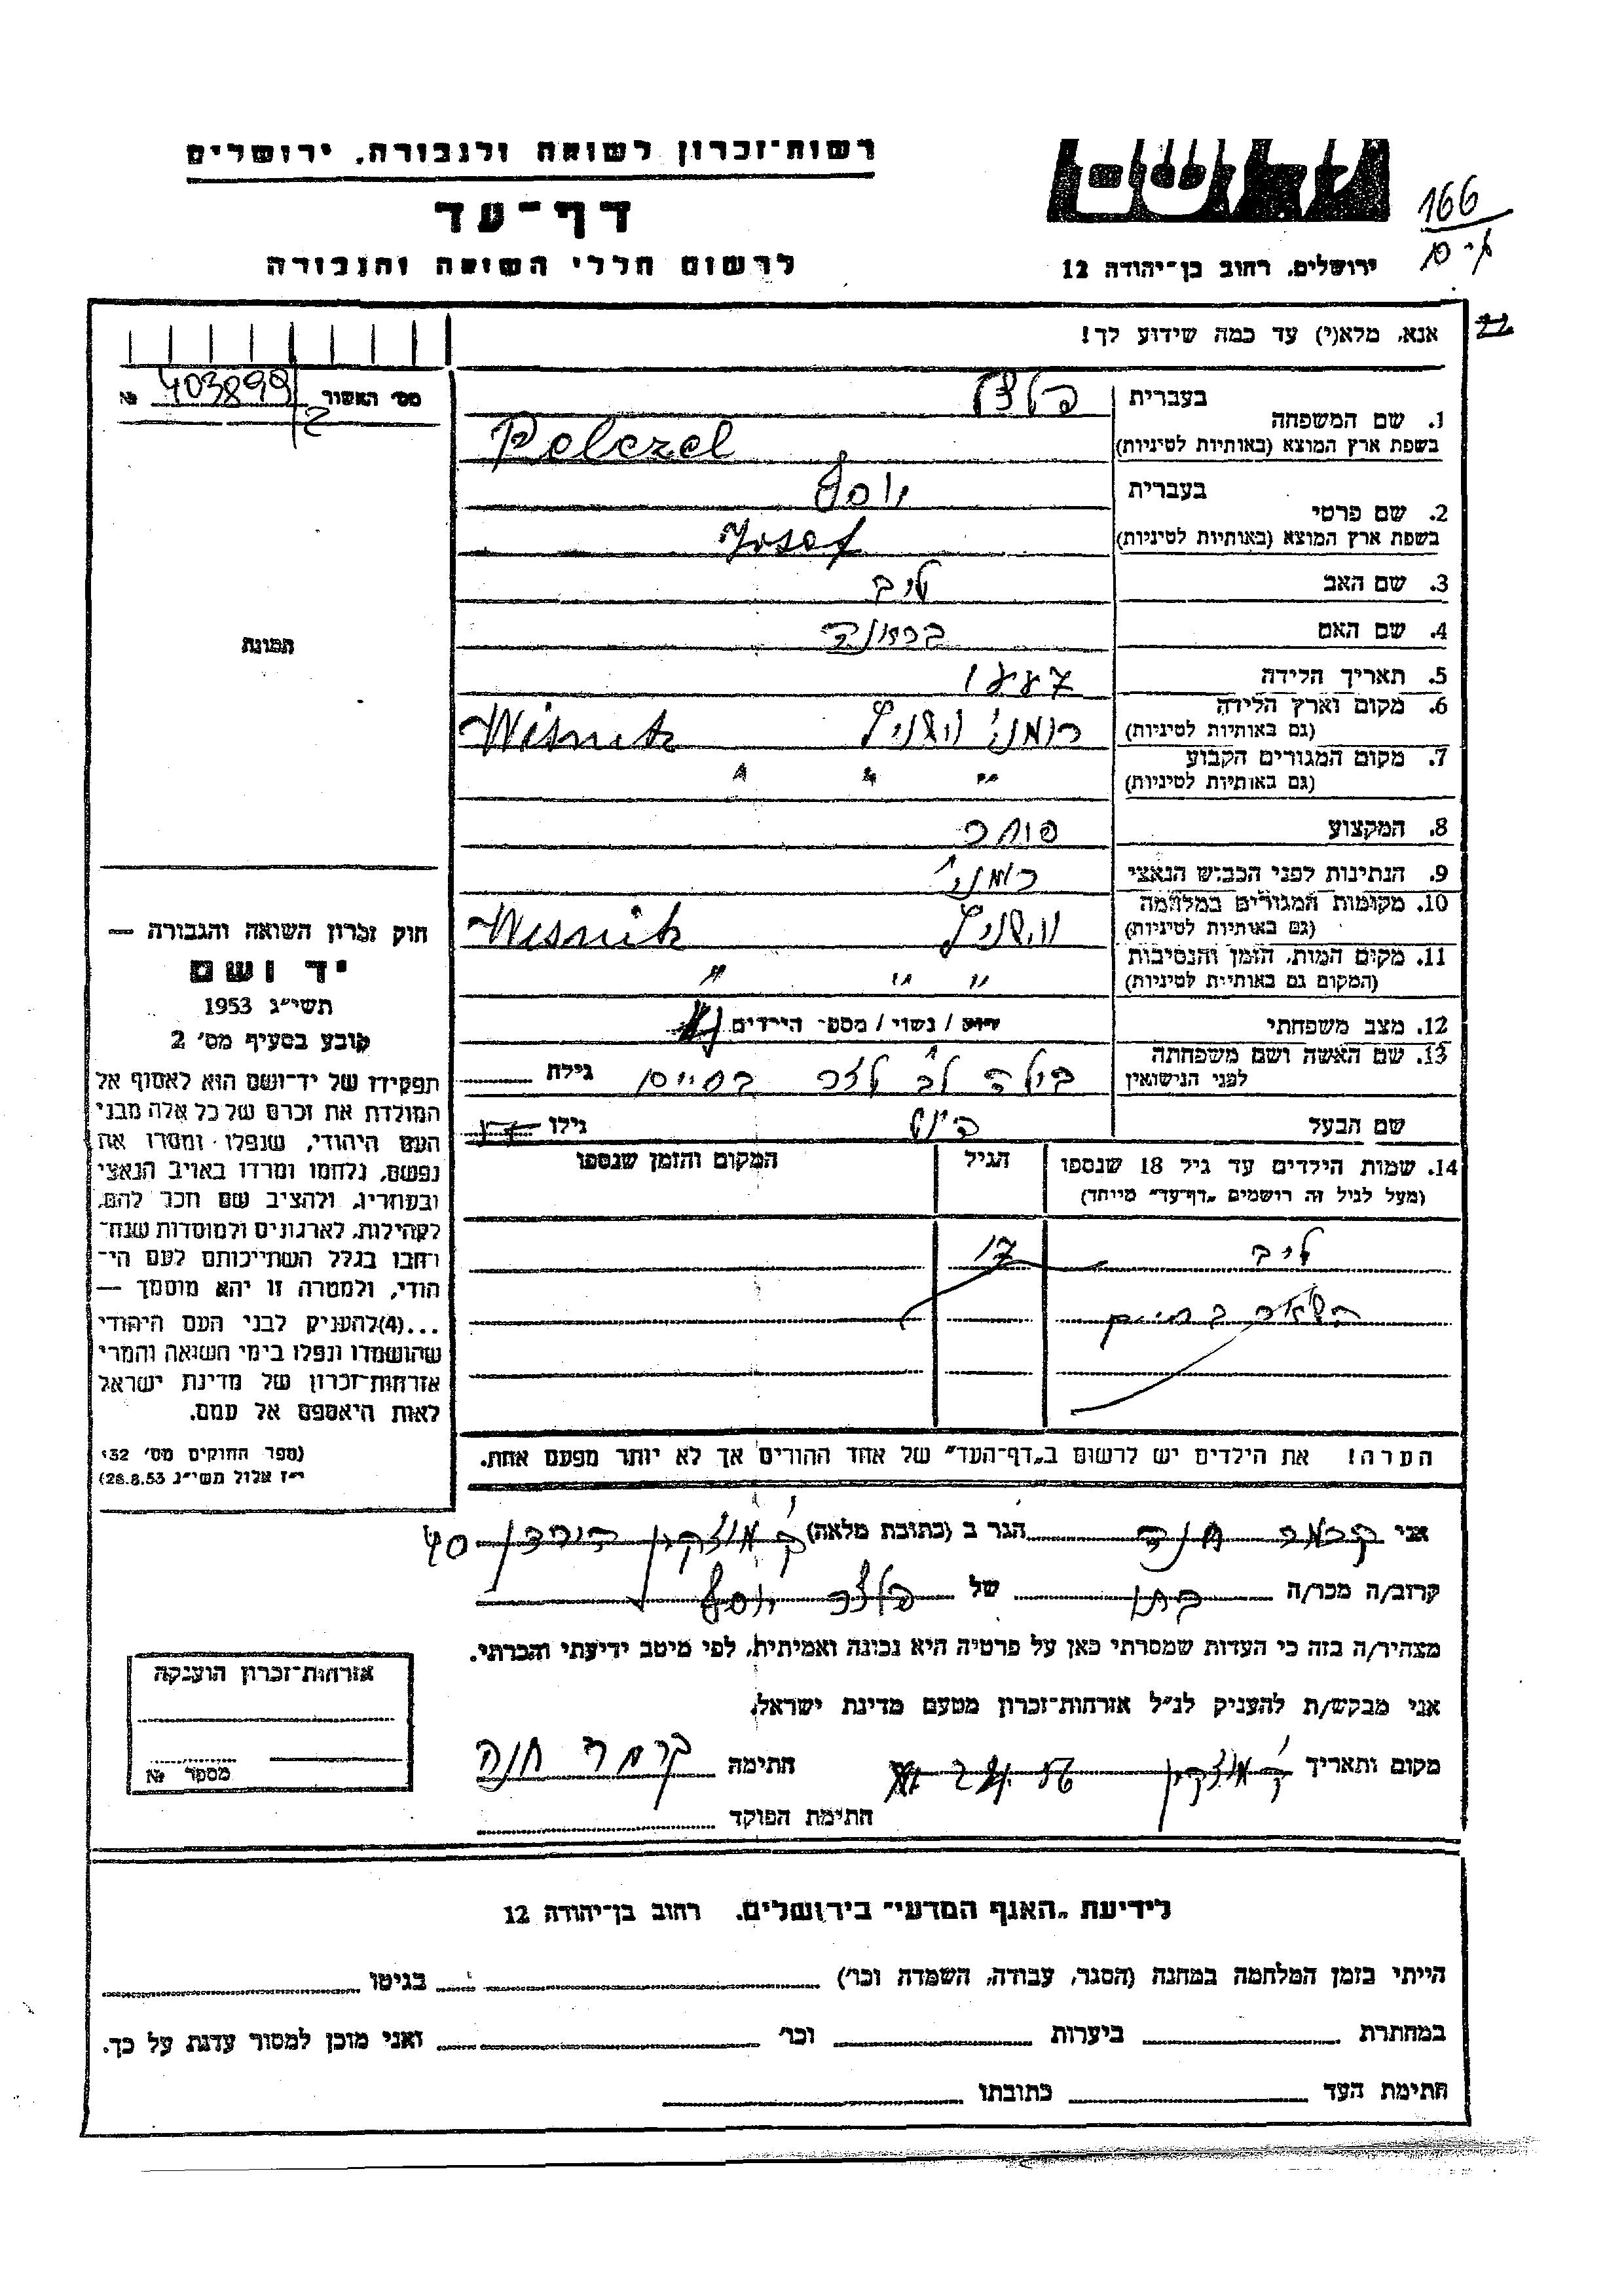 רשות־זכרון לשואה ולגבורה, ירושלים
דף־עד
לרשום חללי השואה והגבורה
ירושלים, רחוב בן־יהודה 12
166
אנא, מלא(י) עד כמה שידוע לך!
מס׳ האשור № 403899
2
1. שם המשפחה
בעברית
בשפת ארץ המוצא (באותיות לטיניות) Pelczel
2. שם פרטי
בעברית יוסף
בשפת ארץ המוצא (באותיות לטיניות) Josef
3. שם האב לייב
4. שם האם
5. תאריך הלידה 1887
6. מקום וארץ הלידה
(גם באותיות לטיניות) רומני׳ וישניץ Wisnitz
7. מקום המגורים הקבוע
(גם באותיות לטיניות) " " "
8. המקצוע סוחר
9. הנתינות לפני הכבוש הנאצי רומני׳
10. מקומות המגורים במלחמה
(גם באותיות לטיניות) וישניץ Wisnitz
11. מקום המות, הזמן והנסיבות
(המקום גם באותיות לטיניות) " " "
12. מצב משפחתי רווק / נשוי / מספר הילדים
13. שם האשה ושם משפחתה
לפני הנישואין בחיים גילה
שם הבעל גילו
14. שמות הילדים עד גיל 18 שנספו
(מעל לגיל זה רושמים „דף־עד״ מיוחד)
הגיל
המקום והזמן שנספו
לייב 17
השאר בחיים
הערה! את הילדים יש לרשום ב„דף־העד״ של אחד ההורים אך לא יותר מפעם אחת.
תמונה
חוק זכרון השואה והגבורה —
יד ושם
תשי״ג 1953
קובע בסעיף מס׳ 2
תפקידו של יד־ושם הוא לאסוף אל
המולדת את זכרם של כל אלה מבני
העם היהודי, שנפלו ומסרו את
נפשם, נלחמו ומרדו באויב הנאצי
ובעוזריו, ולהציב שם וזכר להם,
לקהילות, לארגונים ולמוסדות שנח־
רבו בגלל השתייכותם לעם הי־
הודי, ולמטרה זו יהא מוסמך —
...(4)להעניק לבני העם היהודי
שהושמדו ונפלו בימי השואה והמרי
אזרחות־זכרון של מדינת ישראל
לאות היאספם אל עמם.
(ספר החוקים מס׳ 132
י״ז אלול תשי״ג 28.8.53)
אני קרמר חנה הגר ב (כתובת מלאה) ק׳ מוצקין 40
קרוב/ה מכר/ה בתו של פלצר יוסף
מצהיר/ה בזה כי העדות שמסרתי כאן על פרטיה היא נכונה ואמיתית, לפי מיטב ידיעתי והכרתי.
אני מבקש/ת להעניק לנ״ל אזרחות־זכרון מטעם מדינת ישראל.
מקום ותאריך ק׳ מוצקין חתימה קרמר חנה
חתימת הפוקד
אזרחות־זכרון הוענקה
מספר №
לידיעת „האגף המדעי״ בירושלים, רחוב בן־יהודה 12
הייתי בזמן המלחמה במחנה (הסגר, עבודה, השמדה וכו׳) בגיטו
במחתרת ביערות וכו׳ ואני מוכן למסור עדות על כך.
חתימת העד כתובתו